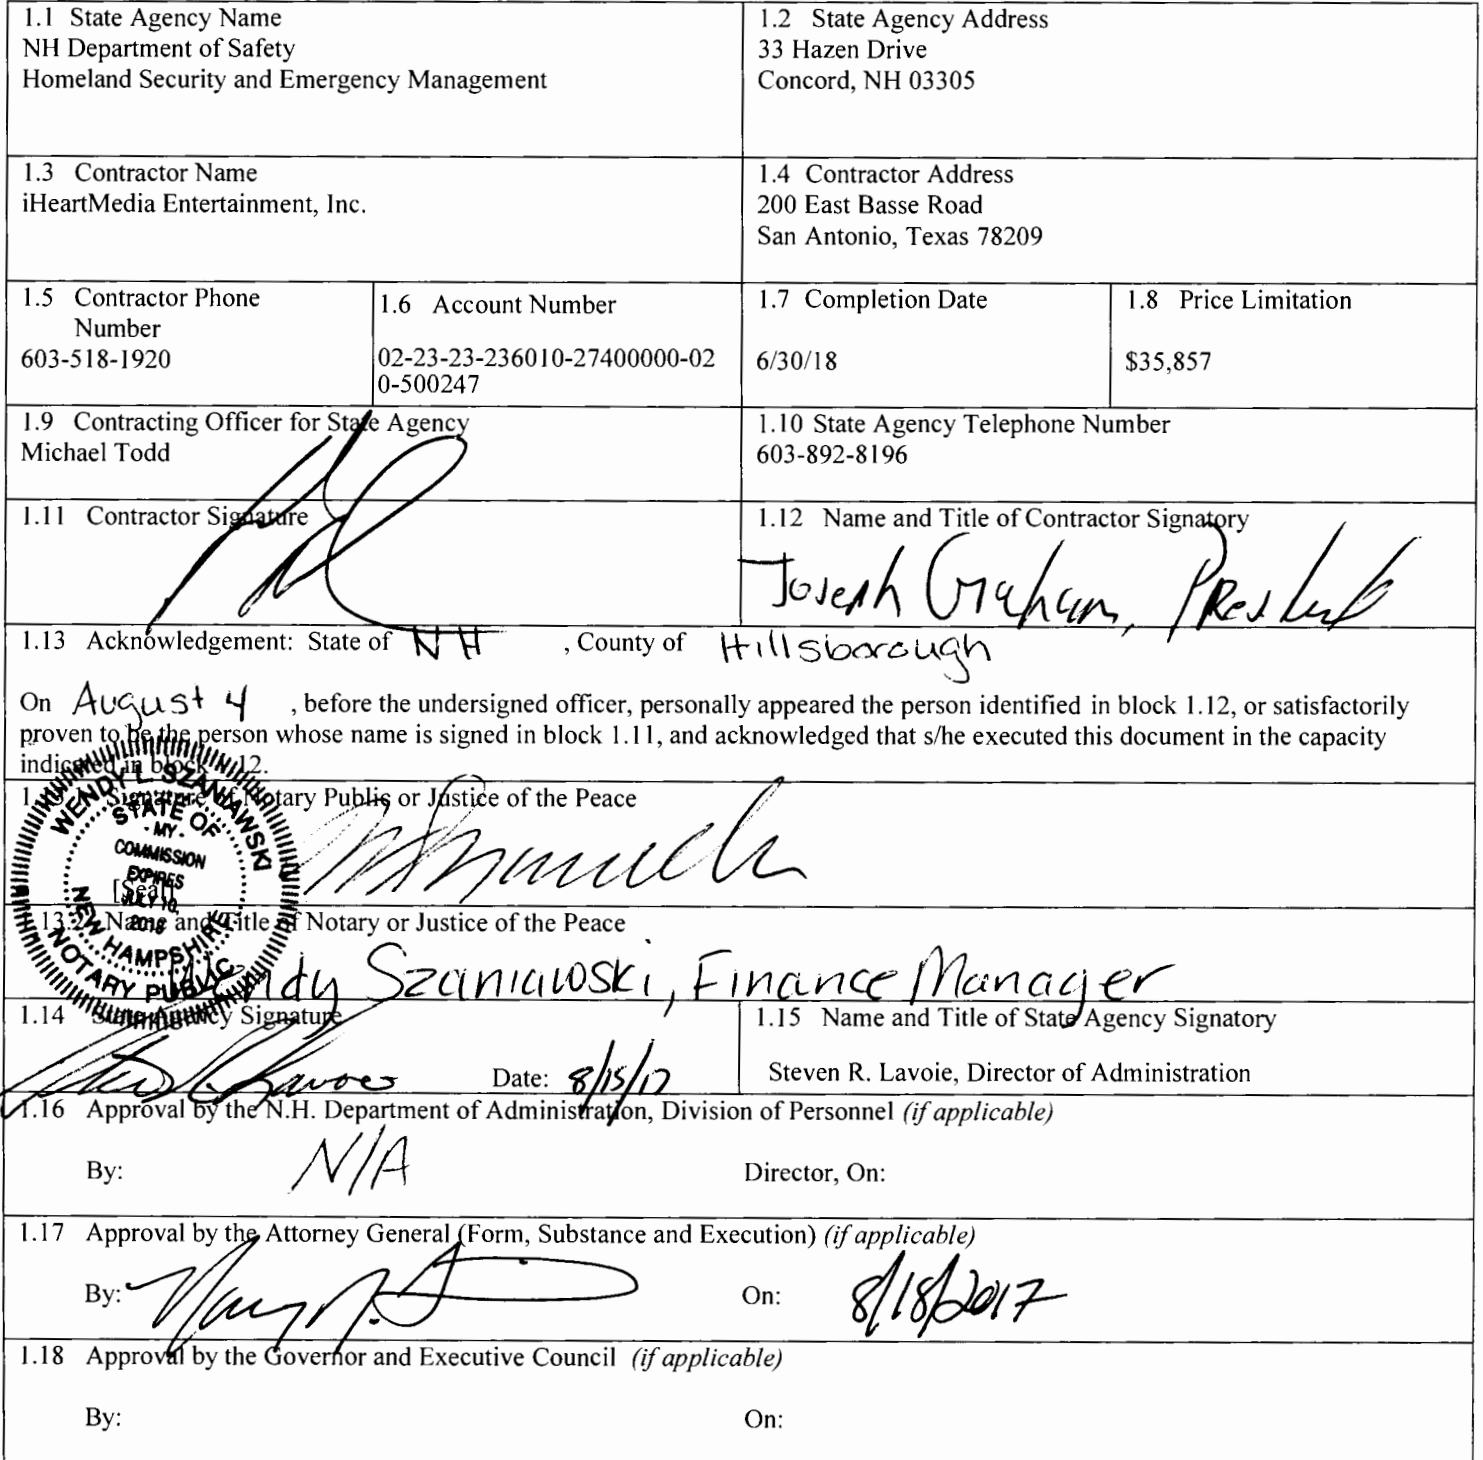 1.1 State Agency Name
NH Department of Safety
Homeland Security and Emergency Management
1.2 State Agency Address
33 Hazen Drive
Concord, NH 03305
1.3 Contractor Name
iHeartMedia Entertainment, Inc.
1.4 Contractor Address
200 East Basse Road
San Antonio, Texas 78209
1.5 Contractor Phone
Number
603-518-1920
1.6 Account Number
02-23-23-236010-27400000-02
0-500247
1.7 Completion Date
6/30/18
1.8 Price Limitation
$35,857
1.9 Contracting Officer for State Agency
Michael Todd
1.10 State Agency Telephone Number
603-892-8196
1.11 Contractor Signature
1.12 Name and Title of Contractor Signatory
Joseph Graham, President
1.13 Acknowledgement: State of NH , County of Hillsborough
On August 4 , before the undersigned officer, personally appeared the person identified in block 1.12, or satisfactorily
proven to be the person whose name is signed in block 1.11, and acknowledged that s/he executed this document in the capacity
indicated in block 1.12.
Signature of Notary Public or Justice of the Peace
WENDY L. SZANIAWSKI
STATE OF
- MY -
COMMISSION
EXPIRES
JULY 10,
2018
NEW HAMPSHIRE
NOTARY PUBLIC
[Seal]
1.13.2 Name and Title of Notary or Justice of the Peace
Wendy Szaniawski, Finance Manager
1.14 State Agency Signature
Date: 8/15/17
1.15 Name and Title of State Agency Signatory
Steven R. Lavoie, Director of Administration
1.16 Approval by the N.H. Department of Administration, Division of Personnel (if applicable)
By: N/A Director, On:
1.17 Approval by the Attorney General (Form, Substance and Execution) (if applicable)
By: On: 8/18/2017
1.18 Approval by the Governor and Executive Council (if applicable)
By: On: